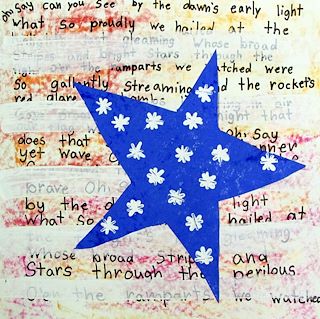 Oh, say can you see by the dawn's early light
what so proudly we hailed at the
gleaming whose broad
stripes and bright stars through the
the ramparts we watched were
So gallantly streaming and the rockets
red glare bombs in air
night that
does that Oh! Say
yet wave
brave Oh! S
by the d light
what so hailed at
gleaming
whose broad strip and
Stars through the perilous
O'er the ramparts we watched